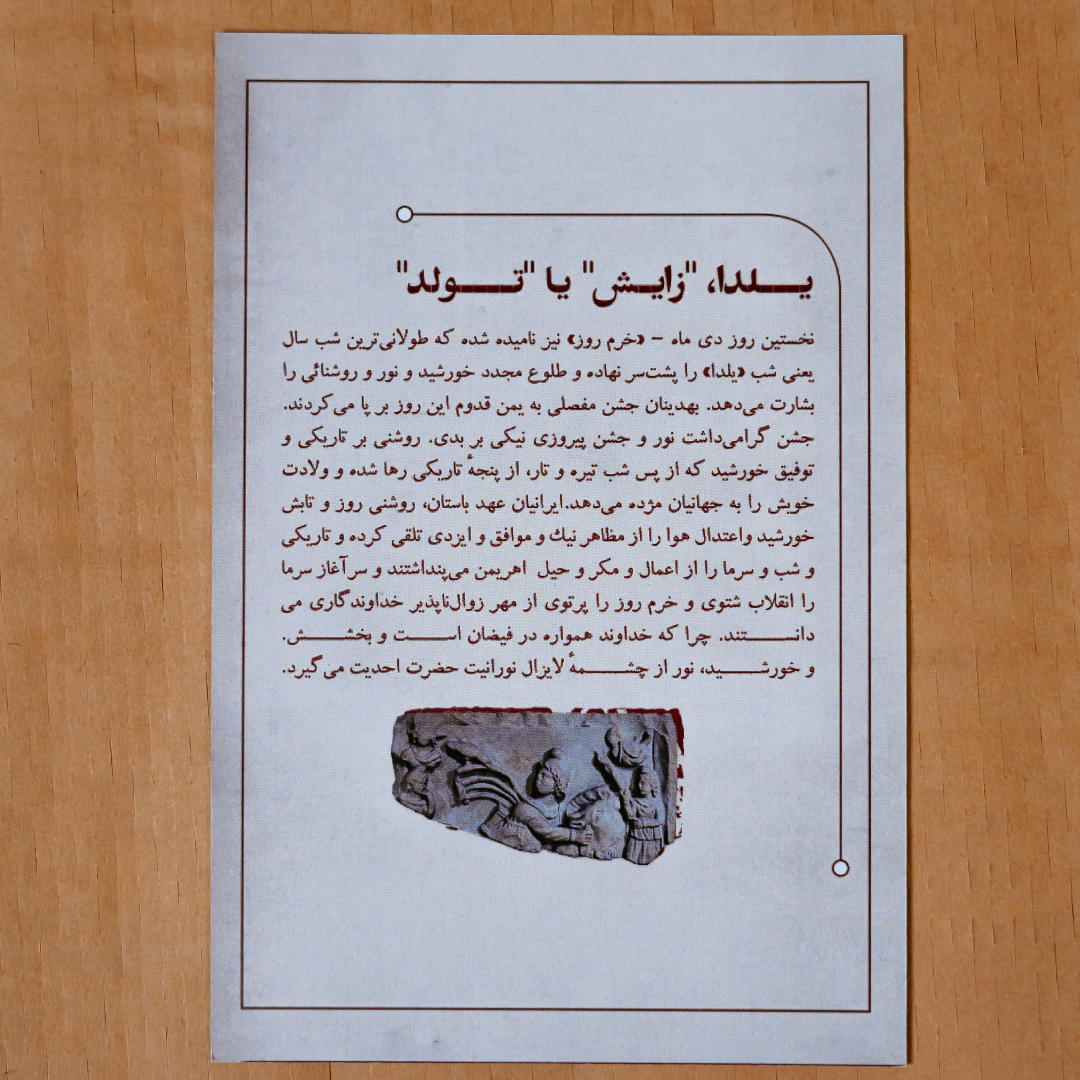 یلدا، "زایش" یا "تولد"
نخستین روز دی ماه – «خرم روز» نیز نامیده شده که طولانی‌ترین شب سال
یعنی شب «یلدا» را پشت‌سر نهاده و طلوع مجدد خورشید و نور و روشنائی را
بشارت می‌دهد. بهدینان جشن مفصلی به یمن قدوم این روز بر پا می‌کردند.
جشن گرامی‌داشت نور و جشن پیروزی نیکی بر بدی. روشنی بر تاریکی و
توفیق خورشید که از پس شب تیره و تار، از پنجهٔ تاریکی رها شده و ولادت
خویش را به جهانیان مژده می‌دهد.ایرانیان عهد باستان، روشنی روز و تابش
خورشید واعتدال هوا را از مظاهر نیك و موافق و ایزدی تلقی کرده و تاریکی
و شب و سرما را از اعمال و مکر و حیل اهریمن می‌پنداشتند و سرآغاز سرما
را انقلاب شتوی و خرم روز را پرتوی از مهر زوال‌ناپذیر خداوندگاری می
دانستند. چرا که خداوند همواره در فیضان است و بخشش.
و خورشید، نور از چشمهٔ لایزال نورانیت حضرت احدیت می‌گیرد.